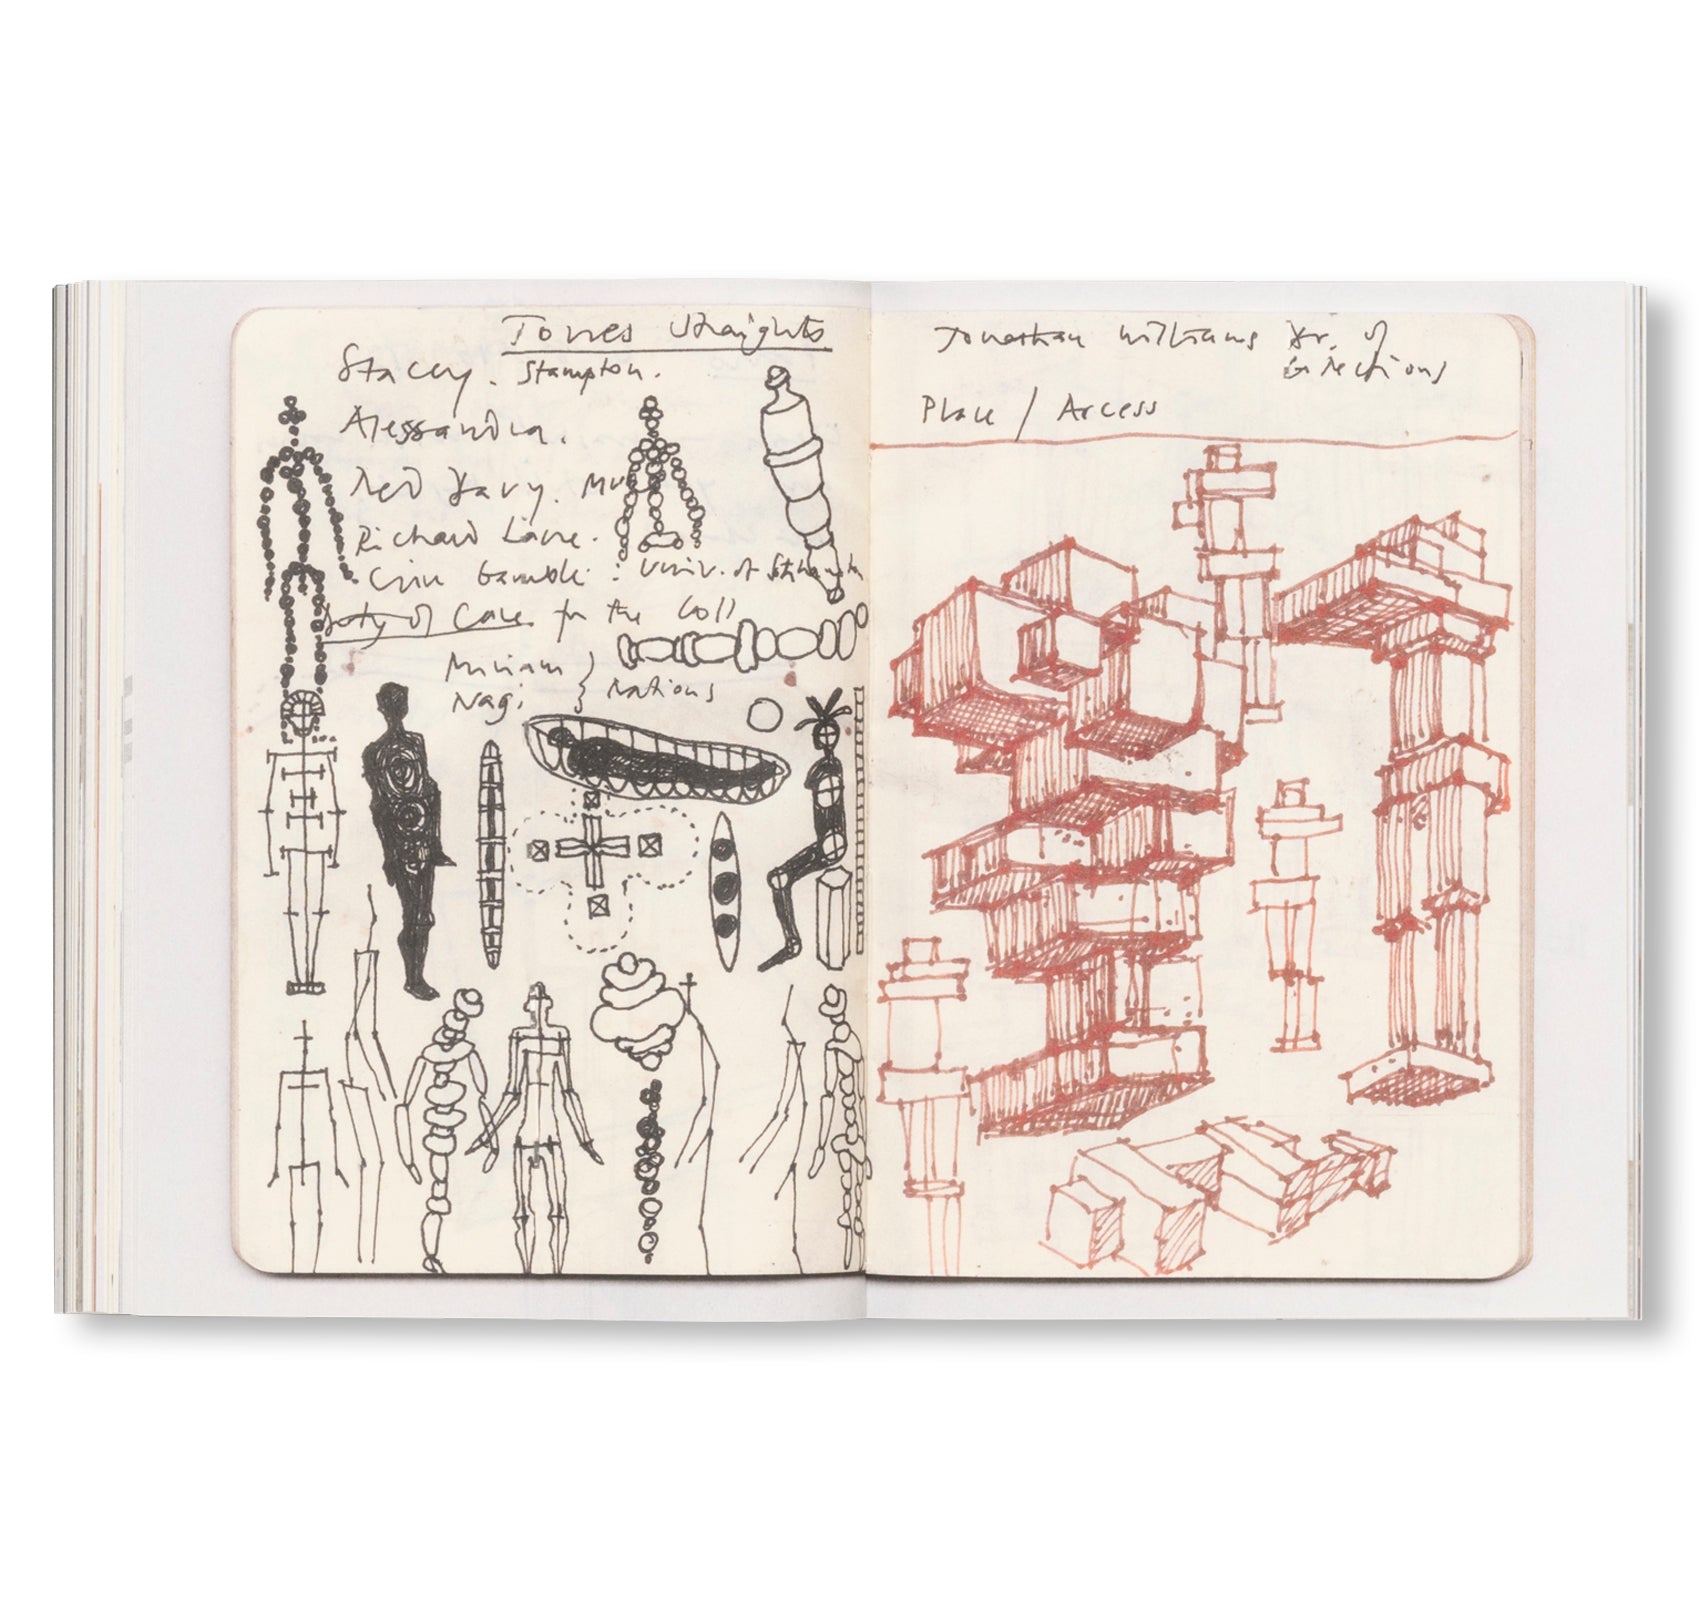 Torres Straights
Stacey. Stampton.
Alessandra.
Richard Lane.
Clive Gamble: Univ. of
Duty of Care for the Coll
Miriam
Nagi } Nations
Jonathan Williams Dr. of
Collections
Place / Access